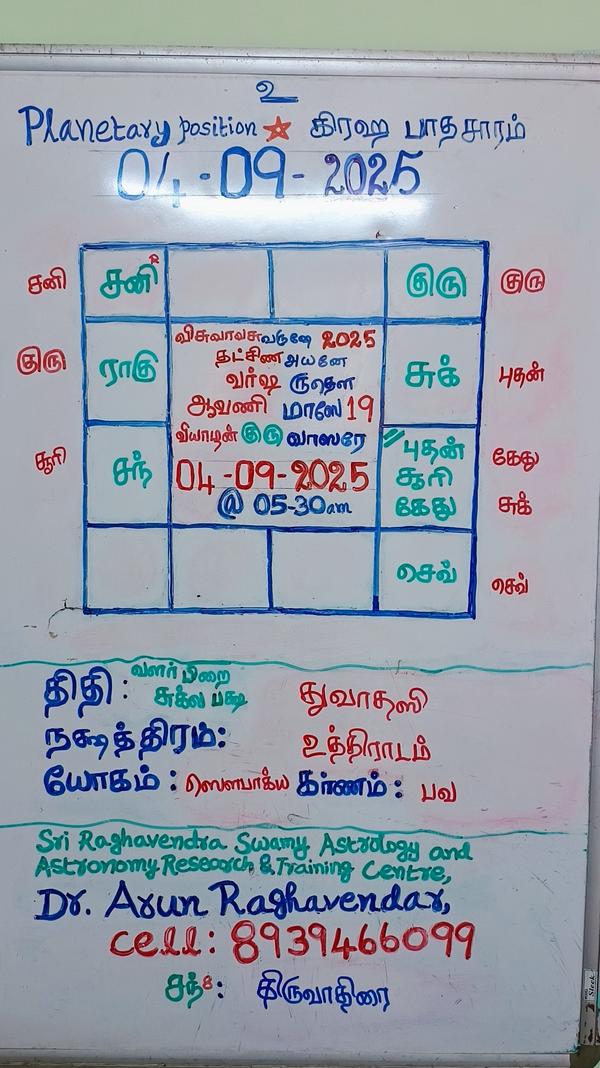 உ
Planetary position ☆ கிரஹ பாதசாரம்
04-09-2025
சனி சனி R குரு குரு
விசுவாவசுவருஷே 2025
தட்சிண அயனே
குரு ராகு வர்ஷ ருதௌ சுக் புதன்
ஆவணி மாஸே 19
வியாழன் குரு வாஸரே
சூரி சந் 04-09-2025 புதன் கேது
சூரி
@ 05-30am கேது சுக்
செவ் செவ்
திதி: வளர்பிறை சுக்ல பக்ஷ துவாதஸி
நக்ஷத்திரம்: உத்திராடம்
யோகம்: ஸௌபாக்ய கர்ணம்: பவ
Sri Raghavendra Swamy Astrology and
Astronomy Research & Training Centre,
Dr. Arun Raghavendar,
cell: 8939466099
சந் 8: திருவாதிரை